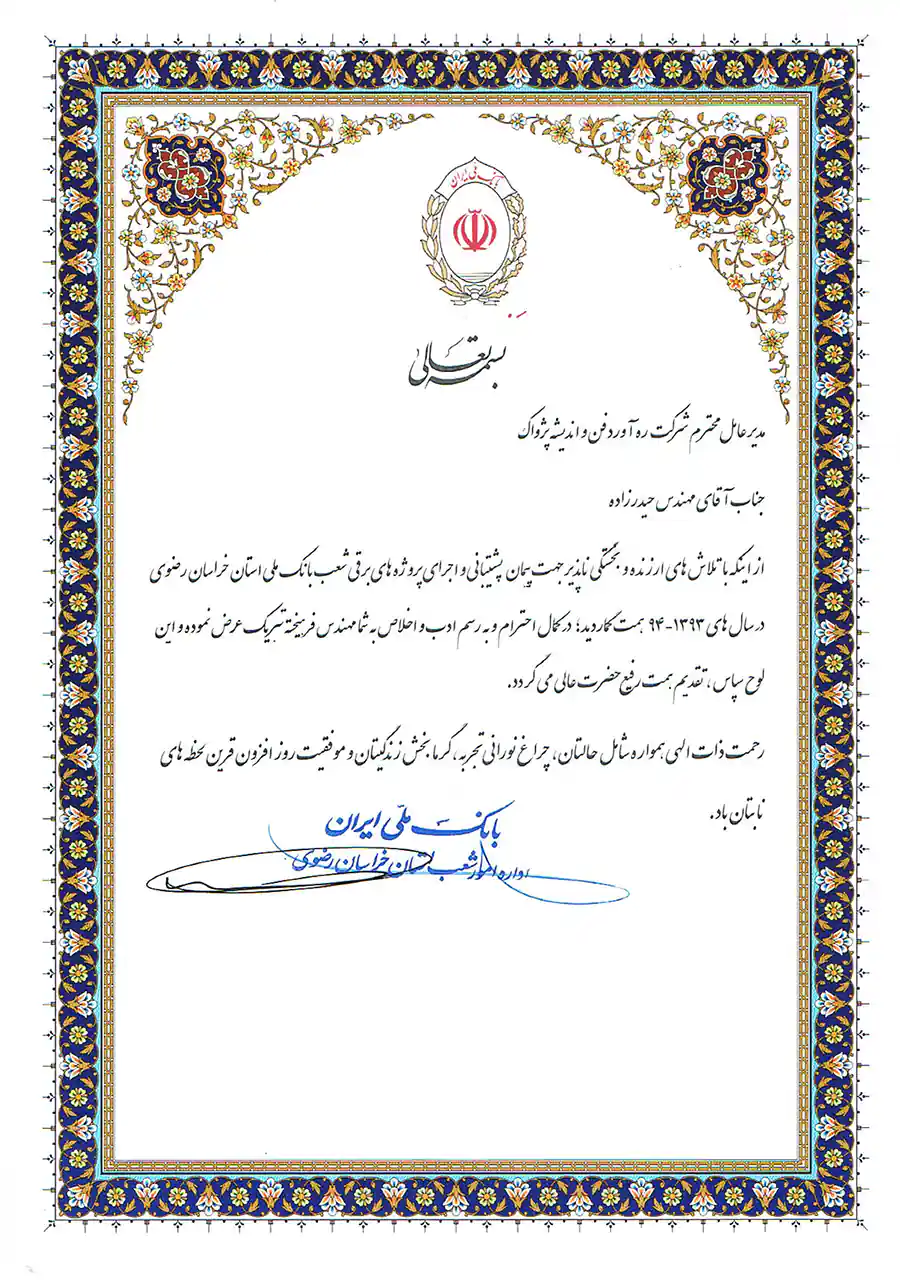 بانک ملی ایران
بسمه تعالی
مدیر عامل محترم شرکت ره آورد فن و اندیشه پژواک
جناب آقای مهندس حیدرزاده
از اینکه با تلاش های ارزنده و خستگی ناپذیر جهت پیمان پشتیبانی و اجرای پروژه های برقی شعب بانک ملی استان خراسان رضوی
در سال های ۱۳۹۳-۹۴ همت گماردید؛ در کمال احترام و به رسم ادب و اخلاص به شما مهندس فرهیخته تبریک عرض نموده و این
لوح سپاس، تقدیم همت رفیع حضرت عالی می گردد.
رحمت ذات الهی همواره شامل حالتان، چراغ نورانی تجربه، گرمابخش زندگیتان و موفقیت روز افزون قرین لحظه های
نابتان باد.
بانک ملّی ایران
اداره امور شعب استان خراسان رضوی